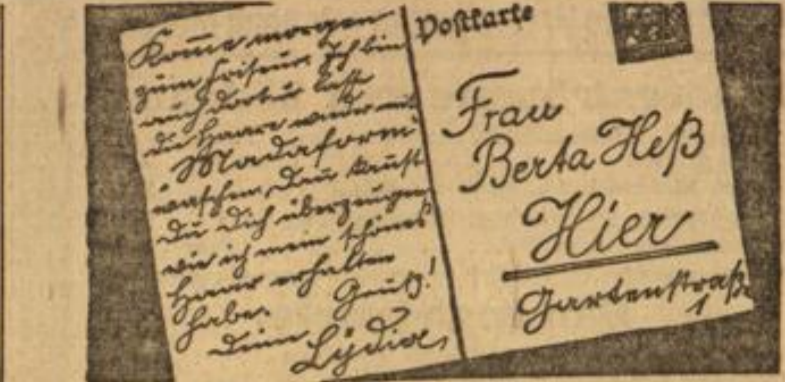 Komme morgen
zum Friseur. Ich bin
auch dort u. lasse
die Haare wieder mit
"Madaform"
waschen. Dann kannst
Du Dich überzeugen
wie ich mein schönes
Haar erhalten
habe. Gruß!
Deine Lydia
Postkarte
Frau
Berta Heß
Hier
Gartenstraße
1